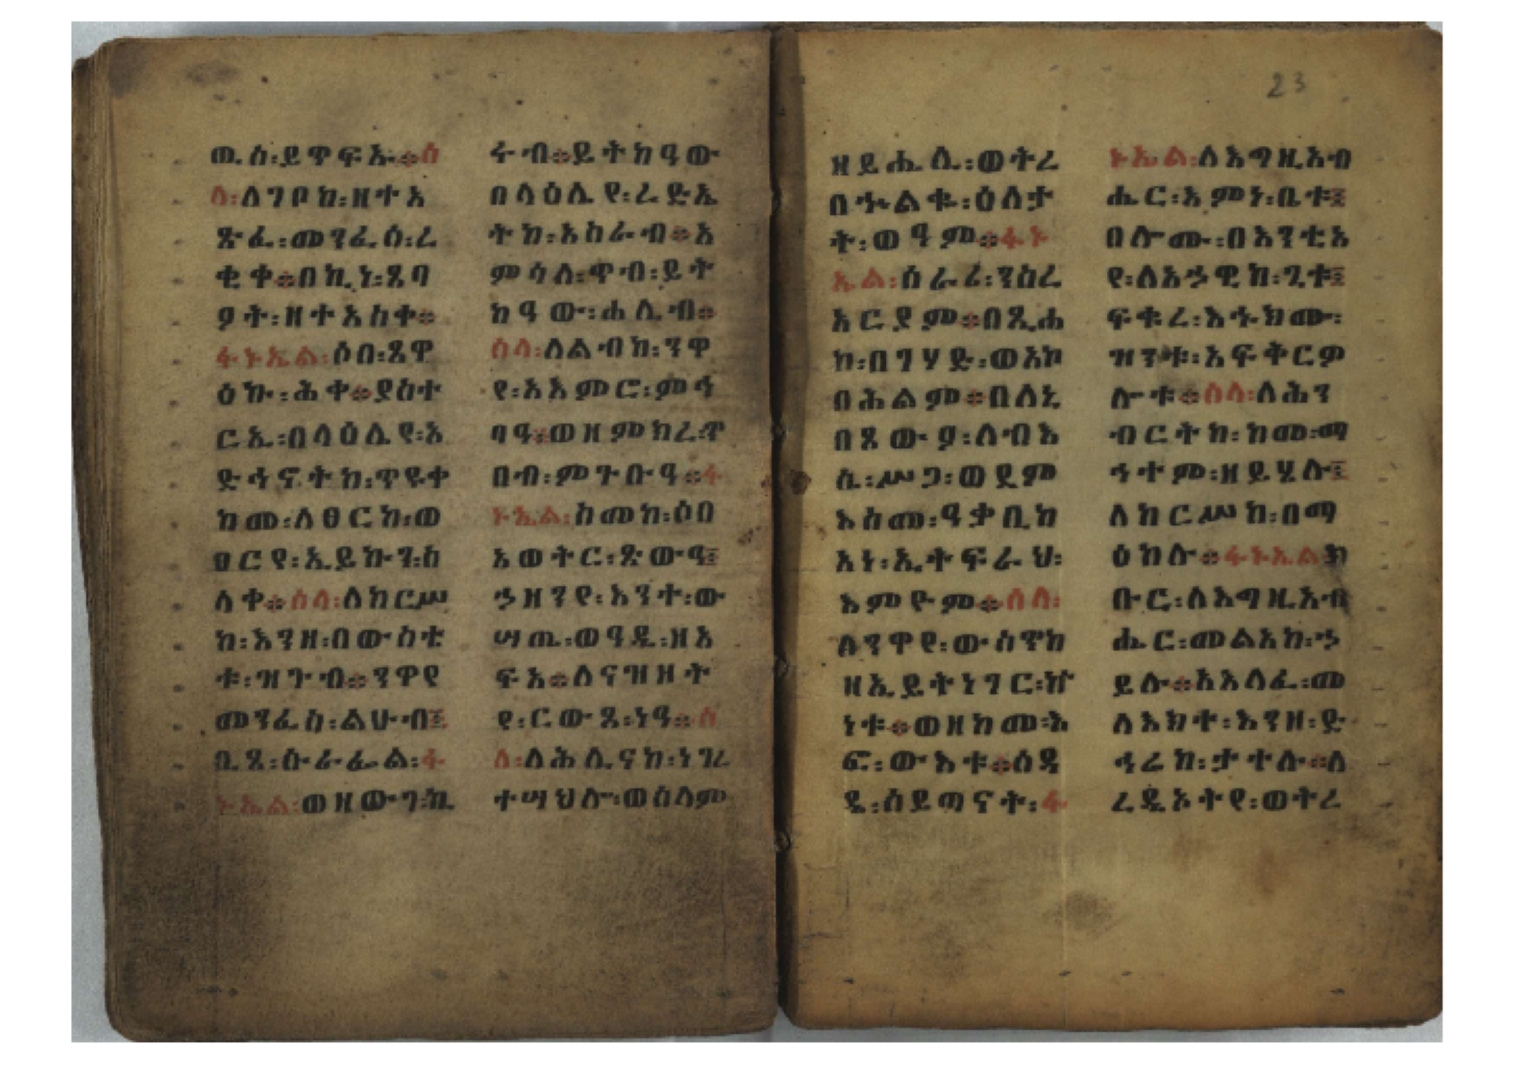 ዉስ፡ይጥፍኡ።ሰ
ላ፡ለገቦከ፡ዘተአ
ጽፈ፡መንፈሰ፡ረ
ቂቀ።በኪነ፡ጸባ
ዖት፡ዘተአስቀ።
ፋኑኤል፡ሶበ፡ጸዋ
ዕኩ፡ሕቀ።ያስተ
ርኢ፡በላዕሌየ፡አ
ድኅኖትከ፡ጥዩቀ
ከመ፡ለፀርከ፡ወ
ፀርየ፡ኢይኩን፡ስ
ላቀ።ሰላ፡ለከርሥ
ከ፡እንዘ፡በውስቴ
ቱ፡ዝጉብ።ንዋየ
መንፈስ፡ልሁብ፤
ቤጸ፡ሱራፌል፡ፋ
ኑኤል፡ወዘውገ፡ኪ
ሩብ።ይትከዓው
በላዕሌየ፡ረድኤ
ትከ፡አስራብ።አ
ምሳለ፡ጥብ፡ይት
ከዓው፡ሐሊብ።
ሰላ፡ለልብከ፡ንዋ
የ፡አእምሮ፡ምኅ
ባዓ።ወዘምክረ፡ጥ
በብ፡ምጉቡዓ።ፋ
ኑኤል፡ከመከ፡ዕበ
አወትር፡ጽውዓ፤
ኃዘንየ፡እንተ፡ው
ሣጤ፡ወዓዲ፡ዘአ
ፍአ።ለናዝዞት
የ፡ርውጸ፡ነዓ።ሰ
ላ፡ለሕሊናከ፡ነገረ
ተሣህሎ፡ወሰላም
23
ዘይሔሊ፡ወትረ
በኍልቁ፡ዕለታ
ት፡ወዓም።ፋኑ
ኤል፡ሰራሪ፡ንስረ
አርያም።በጺሐ
ከ፡በገሃድ፡ወአኮ
በሕልም።በለኒ
በጸውዖ፡ለብእ
ሲ፡ሥጋ፡ወደም
እስመ፡ዓቃቢከ
አነ፡ኢትፍራህ፡
እምዮም።ሰላ፡
ለንዋየ፡ውሰጥከ
ዘኢይትነገር፡ኵ
ነቱ።ወዘከመ፡እ
ፎ፡ውእቱ።ሰዳ
ዴ፡ሰይጣናት፡ፋ
ኑኤል፡ለእግዚአብ
ሔር፡እምነ፡ቤቱ፤
በሎሙ፡በእንቲአ
የ፡ለአኃዊከ፡ጊቱ፤
ፍቁረ፡እኁክሙ፡
ዝንቱ፡አፍቅርዎ
ሎቱ።ሰላ፡ለሕን
ብርትከ፡ከመ፡ማ
ኅተም፡ዘይሄሉ፤
ለከርሥከ፡በማ
ዕከሉ።ፋኑኤል፡ክ
ቡር፡ለእግዚአብ
ሔር፡መልአከ፡ኃ
ይሉ።አእላፈ፡መ
ላእክተ፡እንዘ፡ድ
ኅሬከ፡ታተሉ።ለ
ረዲኦትየ፡ወትረ